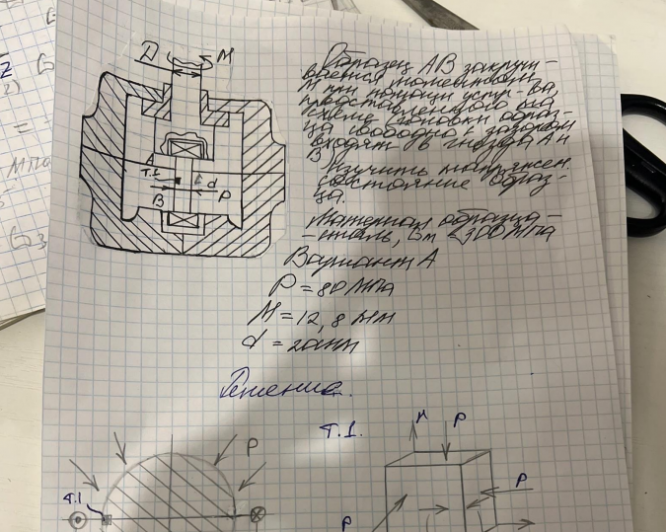 D M
Образец АВ закручи-
вается моментом
М при помощи устр-ва,
представленного на
схеме. Головки образ-
ца свободно с зазором
входят в гнезда А и
В
Изучить напряжен.
состояние образ-
ца.
Материал образца -
- сталь, 300 МПа
A
т.1
d
B
P
Вариант А
P = 80 МПа
М = 12,8
d = 20мм
Решение.
т.1.
M P
P
т.1
P
P